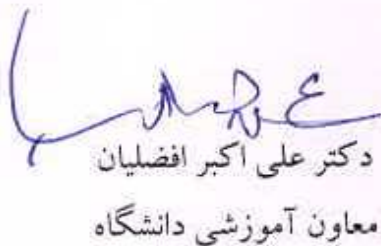 دکتر علی اکبر افضلیان
معاون آموزشی دانشگاه